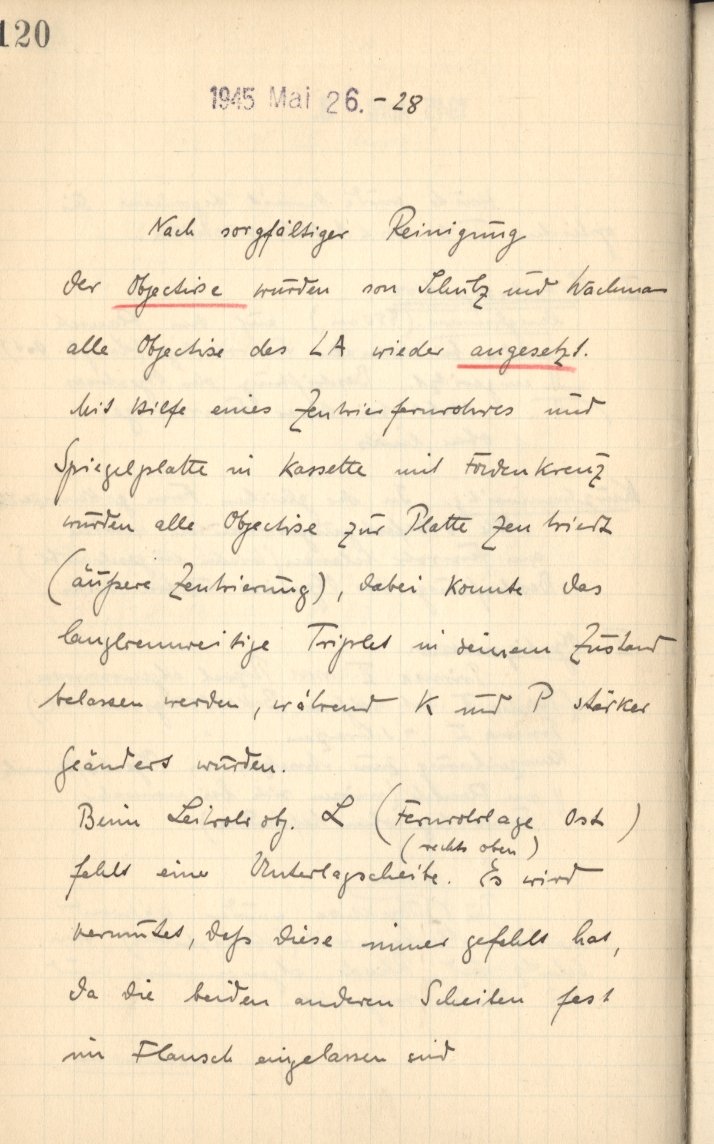 120
1945 Mai 26. - 28
Nach sorgfältiger Reinigung
der Objective wurden von Schütz und Wachmann
alle Objective des LA wieder angesetzt.
Mit Hilfe eines Zentrierfernrohres und
Spiegelplatte in Kassette mit Fadenkreuz
wurden alle Objective zur Platte zentriert
(äußere Zentrierung), dabei konnte das
langbrennweitige Triplet in seinem Zustand
belassen werden, während K und P stärker
geändert wurden.
Beim Leitrohrobj. L (Fernrohrlage Ost)
(rechts oben)
fehlt eine Unterlagscheibe. Es wird
vermutet, daß diese immer gefehlt hat,
da die beiden anderen Scheiben fest
im Flansch eingelassen sind